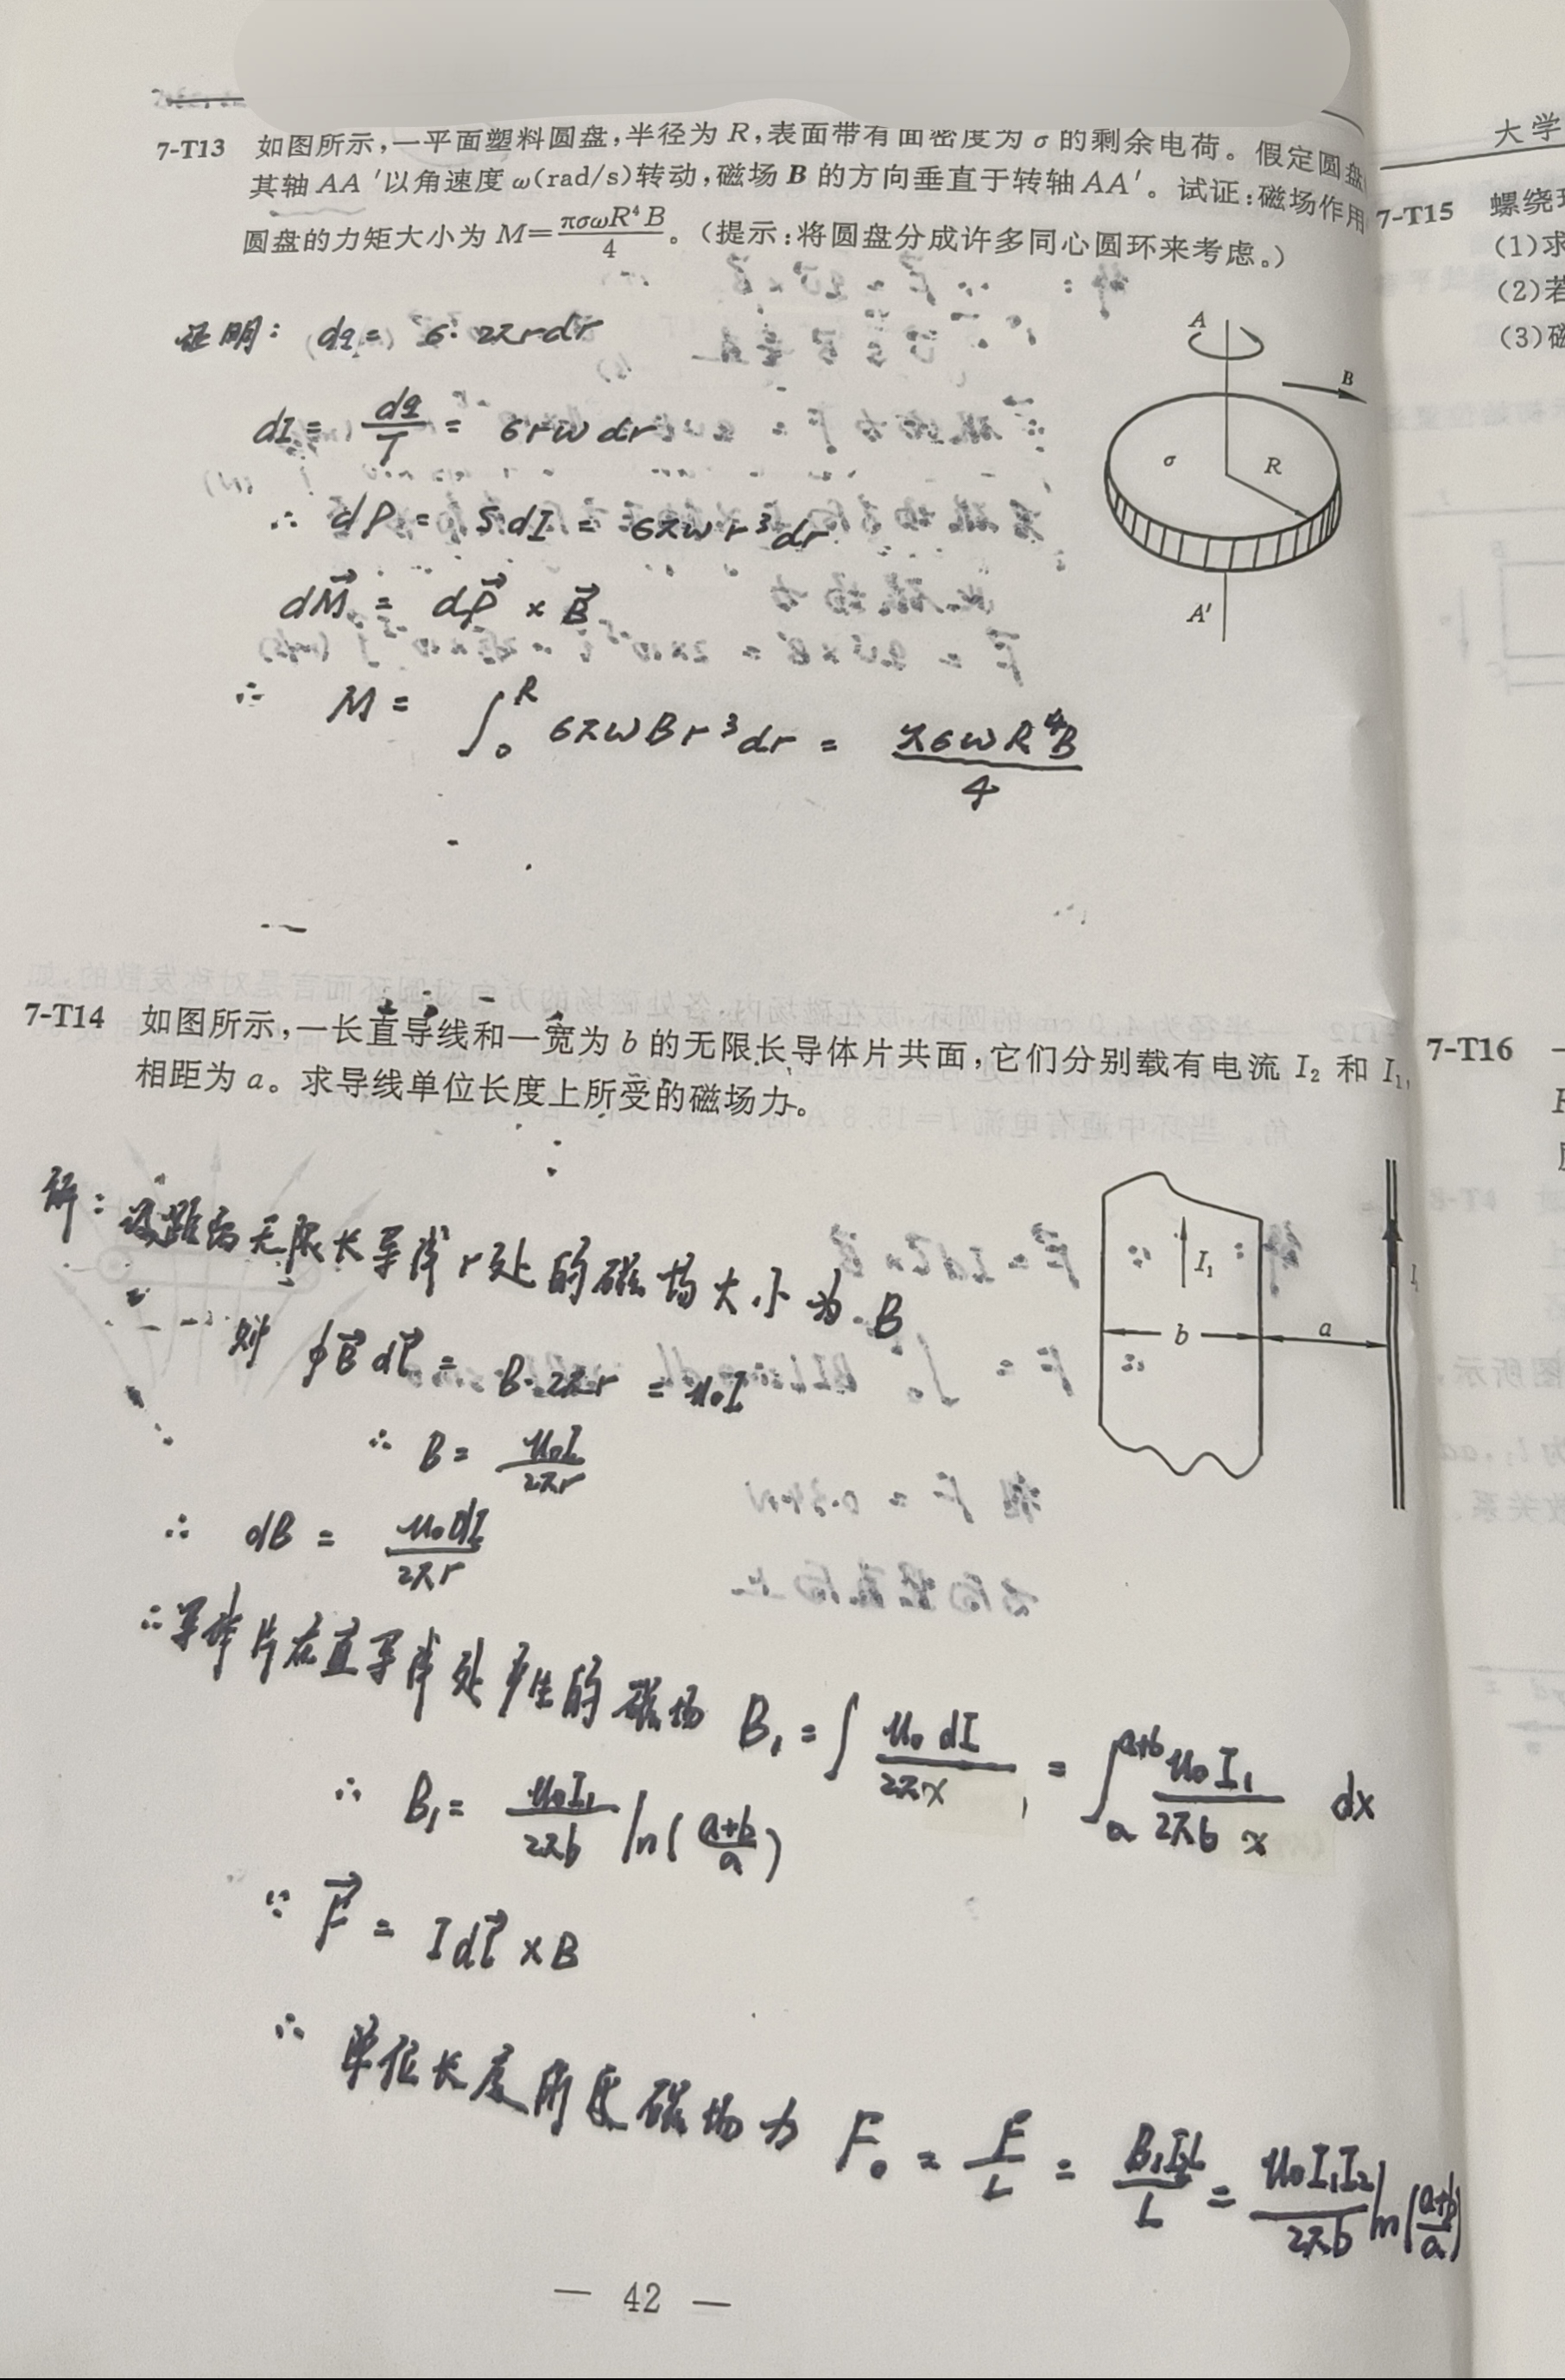 7-T13 如图所示,一平面塑料圆盘,半径为 R,表面带有面密度为 σ 的剩余电荷。假定圆盘
其轴 AA′以角速度 ω(rad/s)转动,磁场 B 的方向垂直于转轴 AA′。试证:磁场作用
圆盘的力矩大小为 M=πσωR⁴B/4。(提示:将圆盘分成许多同心圆环来考虑。)
证明: dq = σ·2πrdr
dI = dq/T = σrωdr
∴ dP = SdI = σπωr³dr
dM⃗ = dP⃗ × B⃗
∴ M = ∫₀ᴿ σπωBr³dr = πσωR⁴B/4
A
B
σ
R
A′
7-T14 如图所示,一长直导线和一宽为 b 的无限长导体片共面,它们分别载有电流 I₂ 和 I₁,
相距为 a。求导线单位长度上所受的磁场力。
解: 设距离无限长导体 r处的磁场大小为 B
则 ∮B⃗dl⃗ = B·2πr = μ₀I
∴ B = μ₀I/2πr
∴ dB = μ₀dI/2πr
∴导体片在直导体处产生的磁场 B₁ = ∫ μ₀dI/2πx = ∫ₐᵃ⁺ᵇ μ₀I₁/2πbx dx
∴ B₁ = μ₀I₁/2πb ln(a+b/a)
∵ F⃗ = Idl⃗×B
∴ 单位长度所受磁场力 F₀ = F/L = B₁I₂L/L = μ₀I₁I₂/2πb ln(a+b/a)
I₁
b
a
— 42 —
大学
7-T15 螺绕
(1)求
(2)若
(3)磁
7-T16